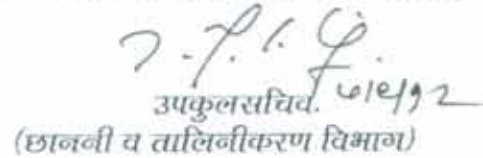 उपकुलसचिव.
(छाननी व तालिनीकरण विभाग)